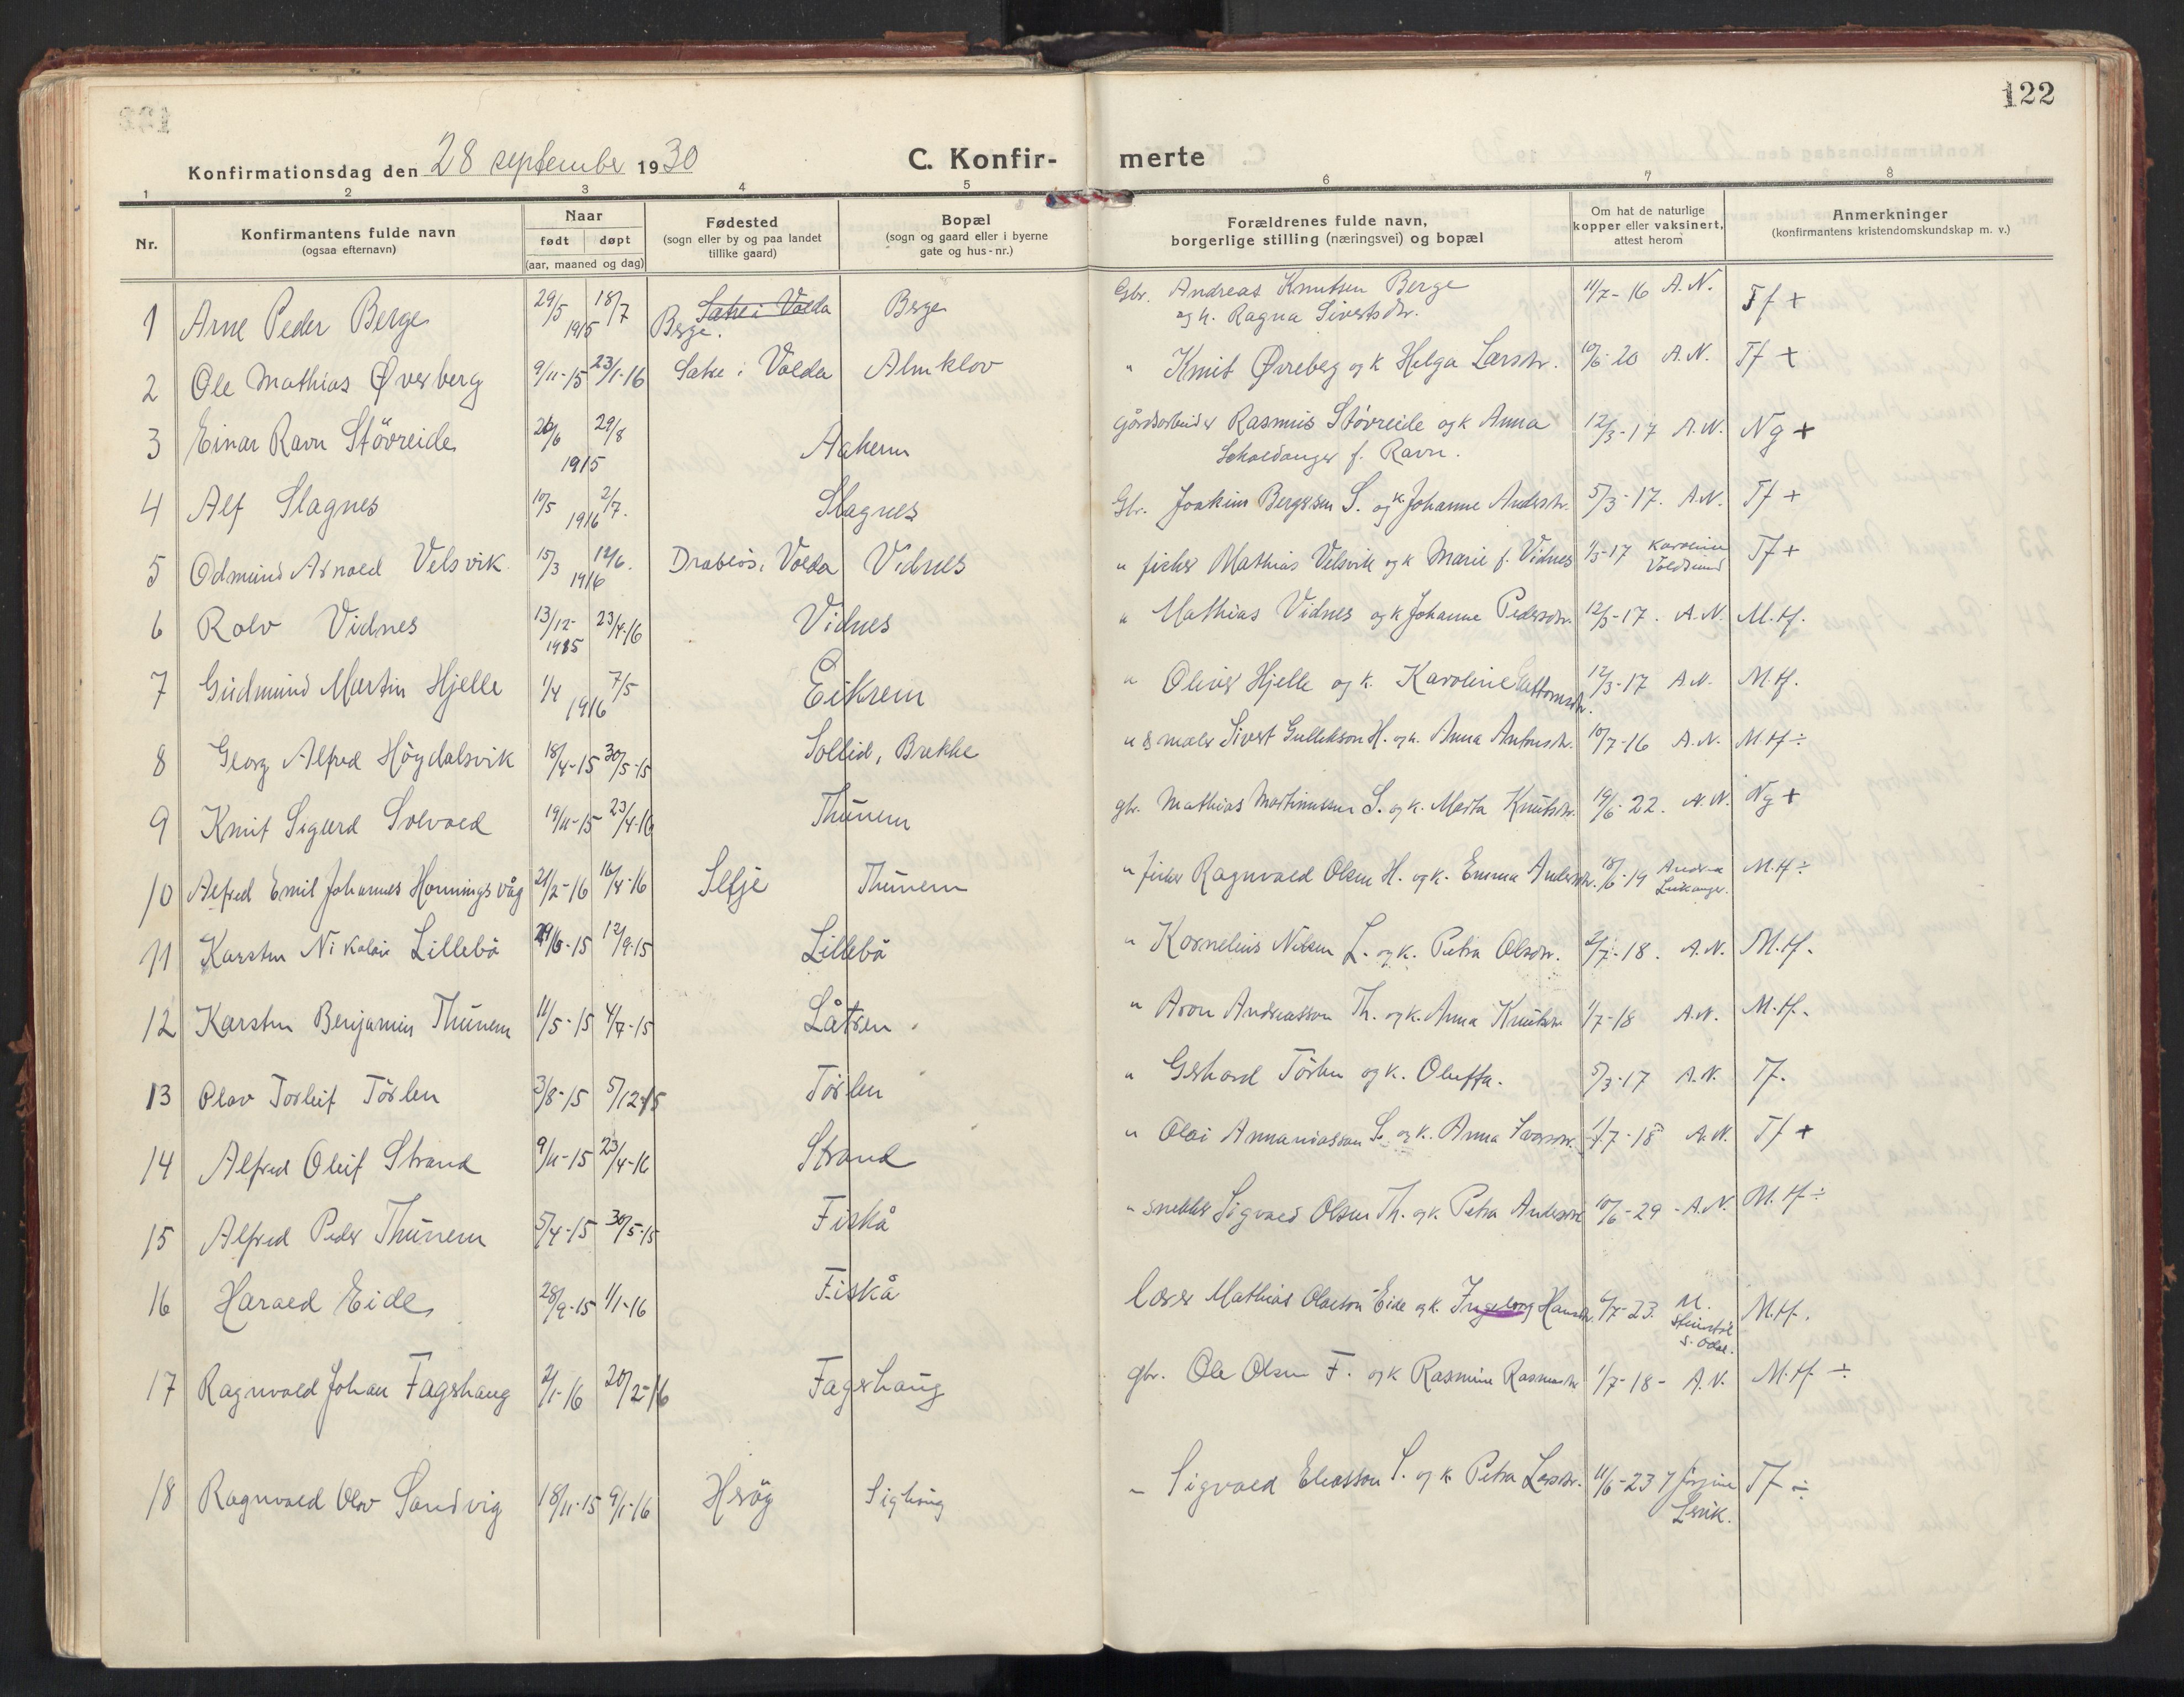 122
Konfirmationsdag den 28 september 1930
C. Konfir- merte
1 2 3 4 5 6 7 8
Nr.
Konfirmantens fulde navn
(ogsaa efternavn)
Naar
født døpt
(aar, maaned og dag)
Fødested
(sogn eller by og paa landet
tillike gaard)
Bopæl
(sogn og gaard eller i byerne
gate og hus-nr.)
Forældrenes fulde navn,
borgerlige stilling (næringsvei) og bopæl
Om hat de naturlige
kopper eller vaksinert,
attest herom
Anmerkninger
(konfirmantens kristendomskundskap m. v.)
1 Arne Peder Berge 29/5 18/7 1915 Satre i Volda Berge. Berge Gbr. Andreas Knutsen Berge 11/7-16 A.N. Tf +
og k. Ragna Sivertsdtr.
2 Ole Mathias Øverberg 9/11-15 23/1-16 Satre i Volda Almklov " Knut Øvreberg og k Helga Larsdtr. 10/6-20 A.N. Tf +
3 Einar Ravn Støvreide 26/6 29/8 1915 Aaheim gårdsarbeider Rasmus Støvreide og k Anna 12/3-17 A.N. Ng +
f. Ravn.
4 Alf Slagnes 10/5 2/7. 1916 Slagnes Gbr. Joakim Bergesen S. og k. Johanne Andersdtr. 5/3-17. A.N. Tf +
5 Odmund Arnold Velsvik 15/3 12/6. 1916 Drabløs i Volda Vidnes " fisker Mathias Velsvik og k Marie f. Vidnes 1/3-17 Karoline Voldsund Tf +
6 Rolv Vidnes 13/12- 1915 23/4-16 Vidnes " Mathias Vidnes og k Johanne Pedersdtr. 12/3-17. A.N. M.H.
7 Gudmund Martin Hjelle 1/4 7/5 1916 Eikrem " Oliver Hjelle og k. Karoline 12/3-17 A.N. M.H.
8 Georg Alfred Høydalsvik 18/4-15 30/5-15 Sollid, Brekke " & maler Sivert Gullikson H. og k. Anna Antonsdtr. 10/7-16 A.N. M.H ÷
9 Knut Sigurd Solvold 19/11-15 23/4-16 Thunem gbr. Mathias Martinussen S. og k. Marta Knutsdtr. 19/6-22. A.N. Ng +
10 Alfred Emil Johannes Honningsvåg 21/2-16 16/4-16 Selje Thunem " fisker Ragnvald Olsen H. og k. Emma Andersdtr. 18/6-19 Andrea Leikanger. M.H ÷
11 Karsten Nikolai Lillebø 29/6-15 12/9-15 Lillebø " Kornelius Nilsen L. og k. Petra Olsdtr. 2/7-18. A.N. M.H.
12 Karsten Benjamin Thunem 11/5-15 4/7-15 Låtren. " Aron Andreasson Th. og k. Anna Knutsdtr 1/7-18 A.N. M.H.
13 Olav Torleif Tørlen 3/8-15 5/12-15 Tørlen " Gerhard Tørlen og k. Oluffa. 5/3-17 A.N. Tf.
14 Alfred Oleif Strand 9/11-15 23/4-16 Strand " Olai Annaniasson S. og k. Anna Ivarsdtr. 1/7-18 A.N. Tf +
15 Alfred Peder Thunem 5/4-15 30/5-15 Fiskå " snekker Sigvald Olsen Th. og k. Petra Andersdtr 10/6-29 - A.N. M.H ÷
16 Harald Eide 28/9-15 1/1-16 Fiskå lærer Mathias Olaeson Eide og k. Ingeborg Hansdtr. 6/7-23. M. S. Odal. M.H.
17 Ragnvald Johan Fagerhaug 2/1-16 20/2-16 Fagerhaug gbr. Ole Olsen F. og k Rasmine Rasmusdtr 1/7-18- A.N. M.H ÷
18 Ragnvald Olav Sandvig 18/11-15 9/1-16 Herøy Sighaug " Sigvald Eliasson S. og k. Petra Larsdtr. 11/6-23 Jørgine Tf ÷